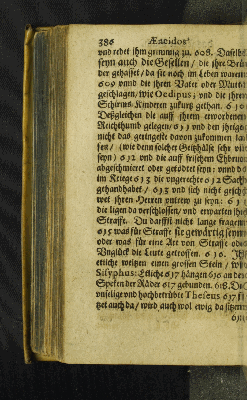 386 Æneidos
und redet ihm grimmig zu 608. Daselbst
seyn auch die Gesellen / die ihre Brü-
der gehasset / da sie noch im Leben waren
609 unnd die ihren Vater oder Mutter
geschlagen / wie Oedipus; und die ihren
Schirms Kindern unkurtz gethan. 610
Deßgleichen die auff ihrem erworbenen
Reichthumb gelegen / 611 und den ihrigen
nicht das geringste davon zukommen las-
sen / (wie denn solcher Geitzhälse sehr viel
seyn) 612 und die auff frischem Ehbruch
abgeschmieret oder getödtet seyn: unnd die
im Kriege 613 die ungerechte 612 Sache
gehandhabet / 613 und sich nicht gescheut
wet ihren Herren untrew zu seyn: 614
die ligen da verschlossen / und erwarten ihrer
Straffe. Du darffst nicht lange fragen /
615 was für Straffe sie gewärtig seyn
oder was für eine Art von Straffe oder
Unglück die Leute getroffen. 616. Ihr
etliche weltzen einen grossen Stein / wie
Sisyphus: Etliche 617 hängen 616 an den
Specken der Räder 617 gebunden. 618. Der
unselige und hochbetrübte Theseus 617 si-
tzet auch da / wird auch wol ewig da sitzen